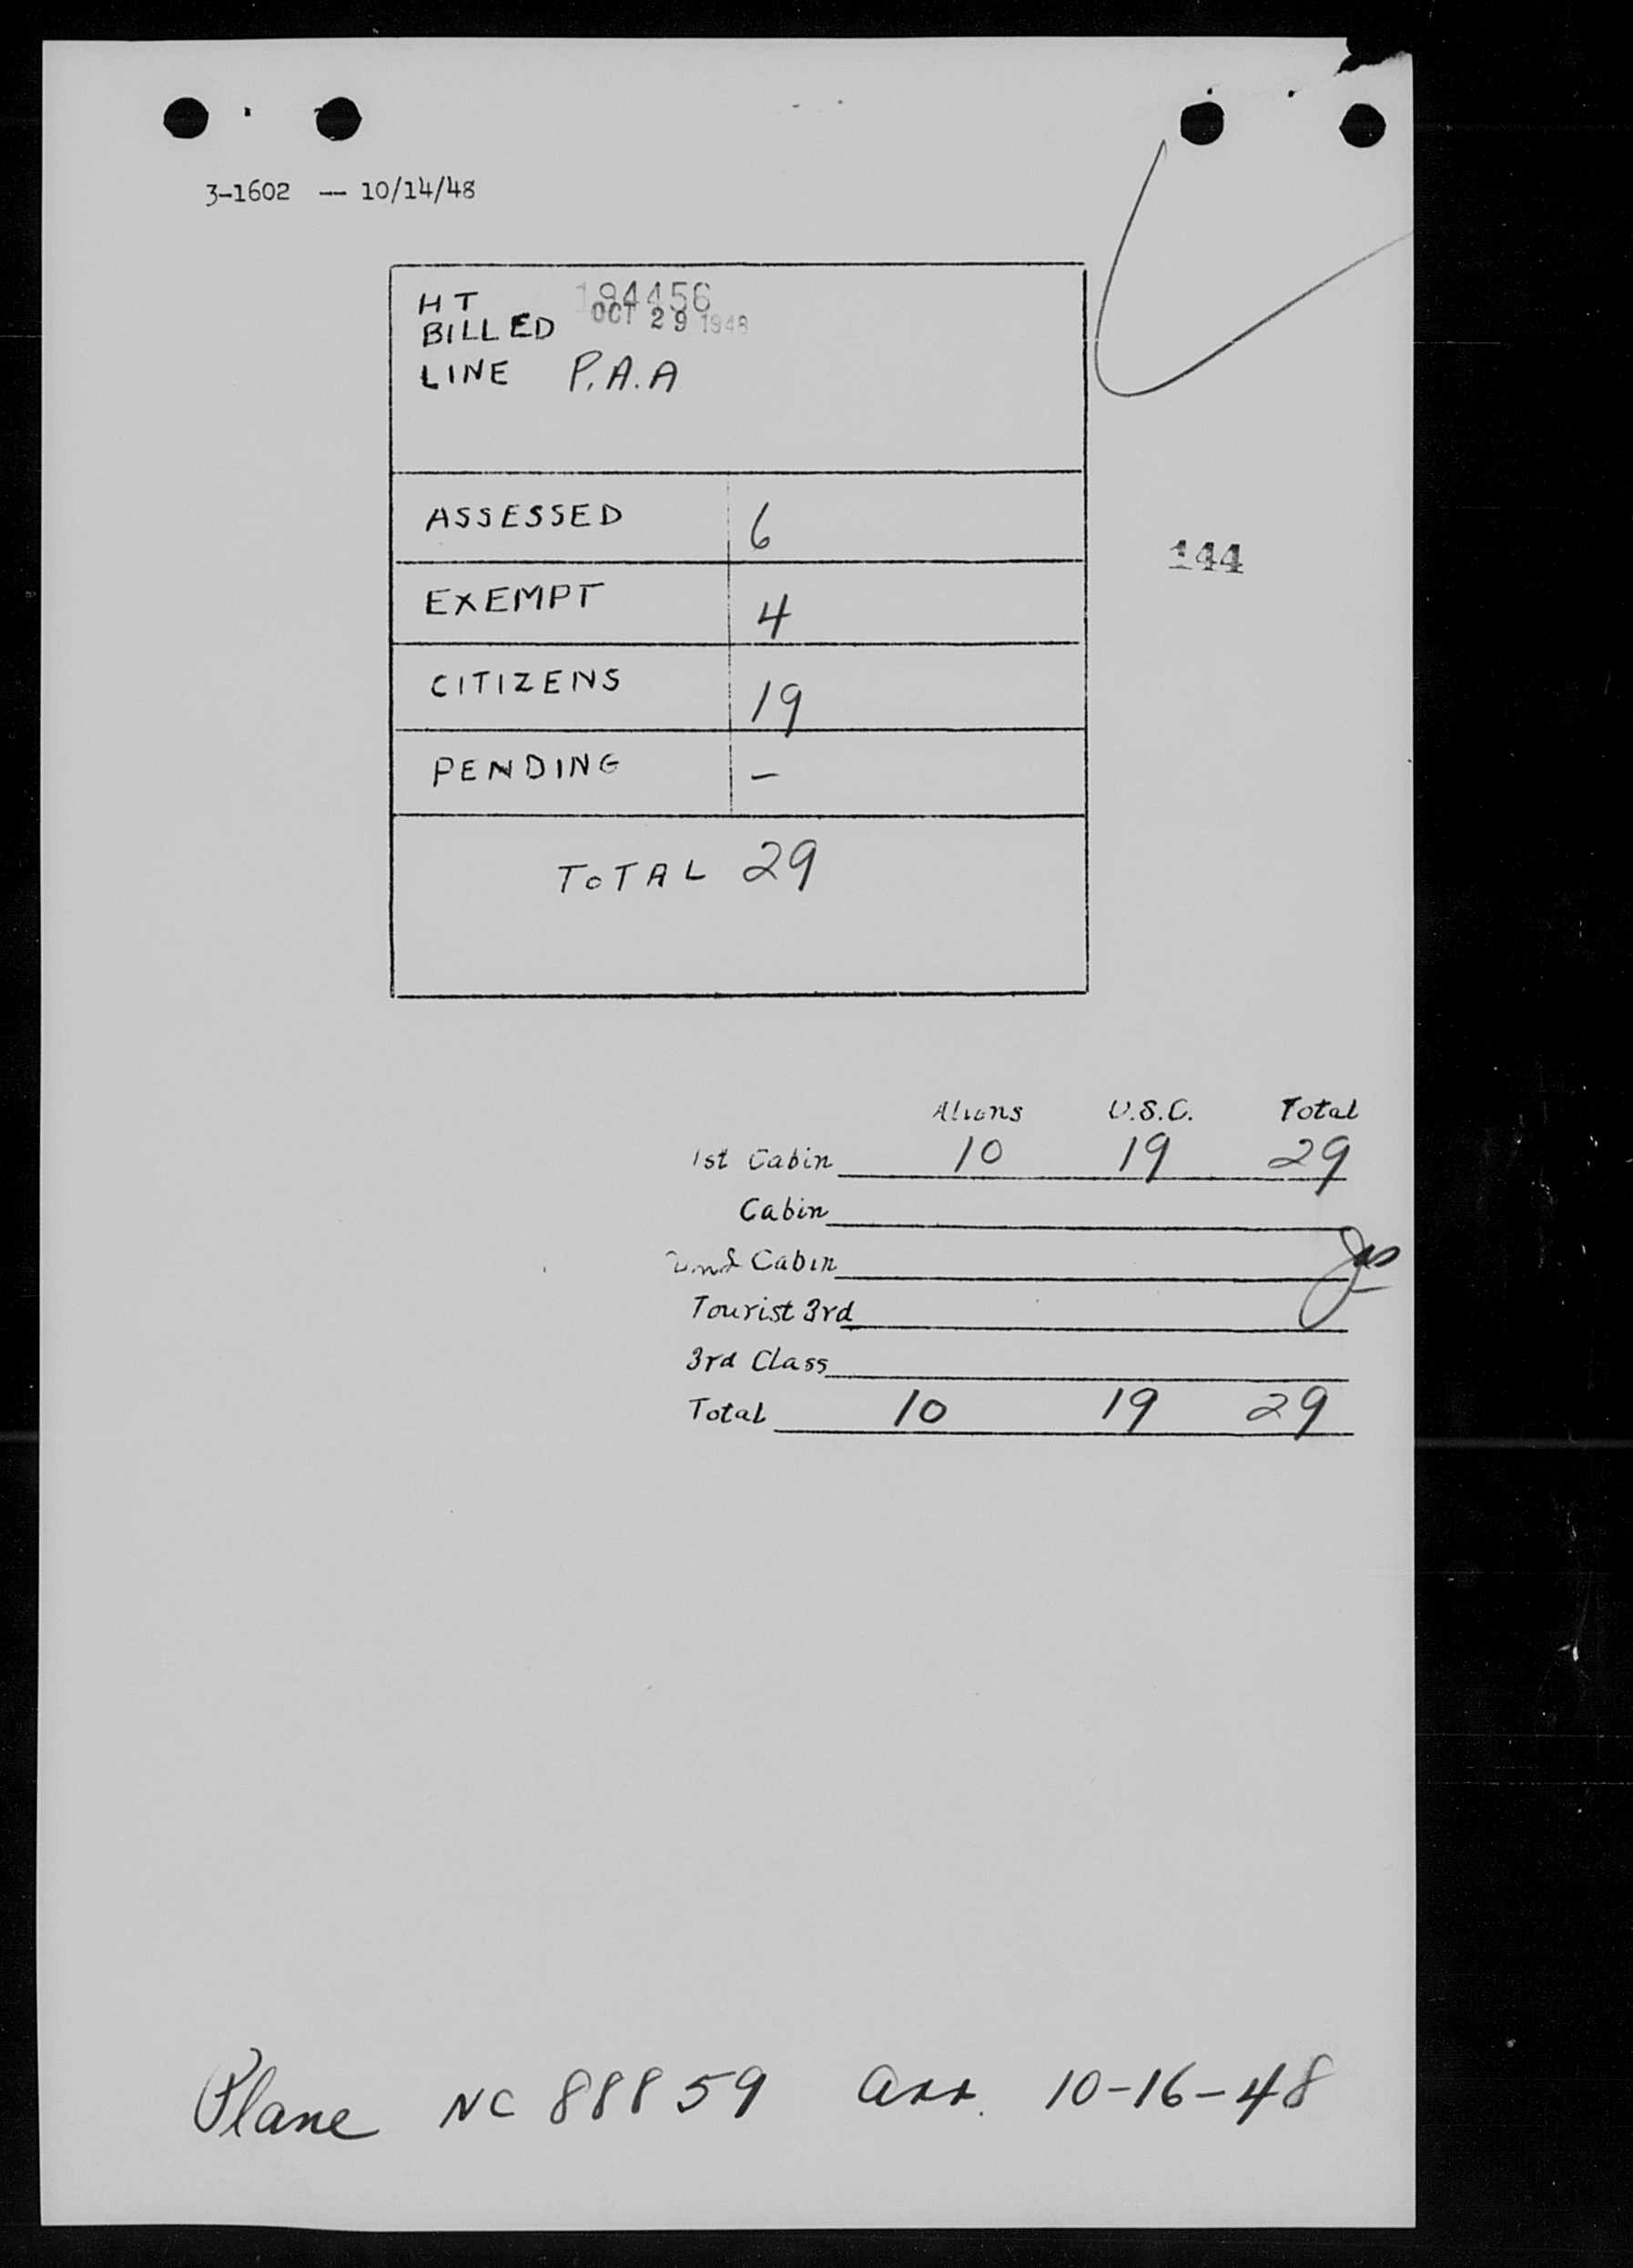 3-1602 — 10/14/48
HT 194456
BILLED OCT 29 1948
LINE P.A.A
ASSESSED 6
144
EXEMPT 4
CITIZENS 19
PENDING –
TOTAL 29
Aliens U.S.C. Total
1st Cabin 10 19 29
Cabin
2nd Cabin
Tourist 3rd
3rd Class
Total 10 19 29
Plane NC 88859 arr. 10-16-48